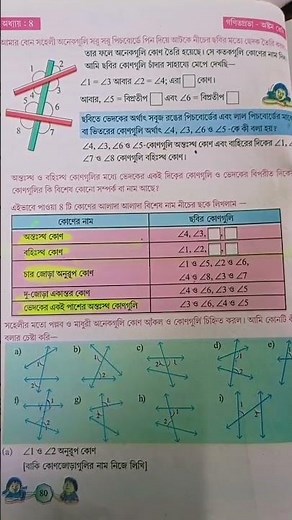 অধ্যায় : 8
গণিতপ্রভা - অষ্টম
আমার বোন সহেলী অনেকগুলি সরু সরু পিচবোর্ডে পিন দিয়ে আটকে নীচের ছবির মতো ভেদক তৈরি
তার ফলে অনেকগুলি কোণ তৈরি হয়েছে। সে কতকগুলি কোণের নাম
আমি ছবির কোণগুলি চাঁদার সাহায্যে মেপে দেখছি—
∠1 = ∠3 আবার ∠2 = ∠4; এরা কোণ।
আবার, ∠5 = বিপ্রতীপ এবং ∠6 = বিপ্রতীপ
ছবিতে ভেদকের অর্থাৎ সবুজ রঙের পিচবোর্ডের এবং লাল পিচবোর্ডের
বা ভিতরের কোণগুলি অর্থাৎ ∠4, ∠3, ∠6 ও ∠5-কে কী বলা হয়?
∠4, ∠3, ∠6 ও ∠5-কোণগুলি অন্তঃস্থ কোণ এবং বাহিরের দিকের ∠1,
∠7 ও ∠8 কোণগুলি বহিঃস্থ কোণ।
অন্তঃস্থ ও বহিঃস্থ কোণগুলির মধ্যে ভেদকের একই দিকের কোণগুলি ও ভেদকের বিপরীত দিকের
কোণগুলির কি বিশেষ কোনো সম্পর্ক বা নাম আছে?
এইভাবে পাওয়া 8 টি কোণের আলাদা আলাদা বিশেষ নাম নীচের ছকে লিখলাম —
কোণের নাম ছবির কোণগুলি
অন্তঃস্থ কোণ ∠4, ∠3,
বহিঃস্থ কোণ ∠1, ∠2,
চার জোড়া অনুরূপ কোণ ∠1 ও ∠5, ∠2 ও ∠6,
∠4 ও ∠8, ∠3 ও ∠7
দু-জোড়া একান্তর কোণ ∠4 ও ∠6, ∠3 ও ∠5
ভেদকের একই পাশের অন্তঃস্থ কোণগুলি ∠3 ও ∠6, ∠4 ও ∠5
সহেলীর মতো পল্লব ও মাধুরী অনেকগুলি কোণ আঁকল ও কোণগুলি চিহ্নিত করল। আমি কোনটি
বলার চেষ্টা করি—
a) b) c) d) e)
f) g) h) i)
(a) ∠1 ও ∠2 অনুরূপ কোণ
[বাকি কোণজোড়াগুলির নাম নিজে লিখি]
80